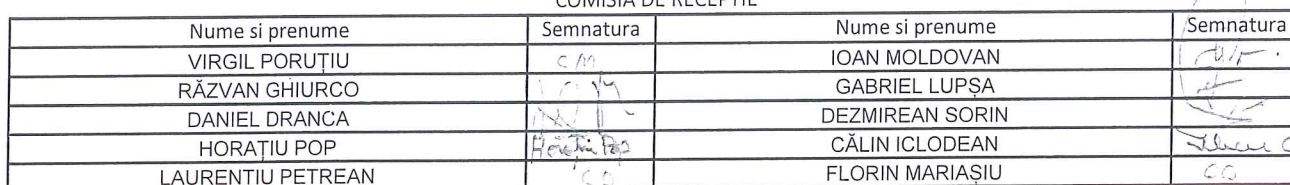 COMISIA DE RECEPTIE
Nume si prenume Semnatura Nume si prenume Semnatura
VIRGIL PORUȚIU CM IOAN MOLDOVAN
RĂZVAN GHIURCO GABRIEL LUPȘA
DANIEL DRANCA DEZMIREAN SORIN
HORAȚIU POP Horațiu Pop CĂLIN ICLODEAN
LAURENTIU PETREAN CO FLORIN MARIAȘIU CO